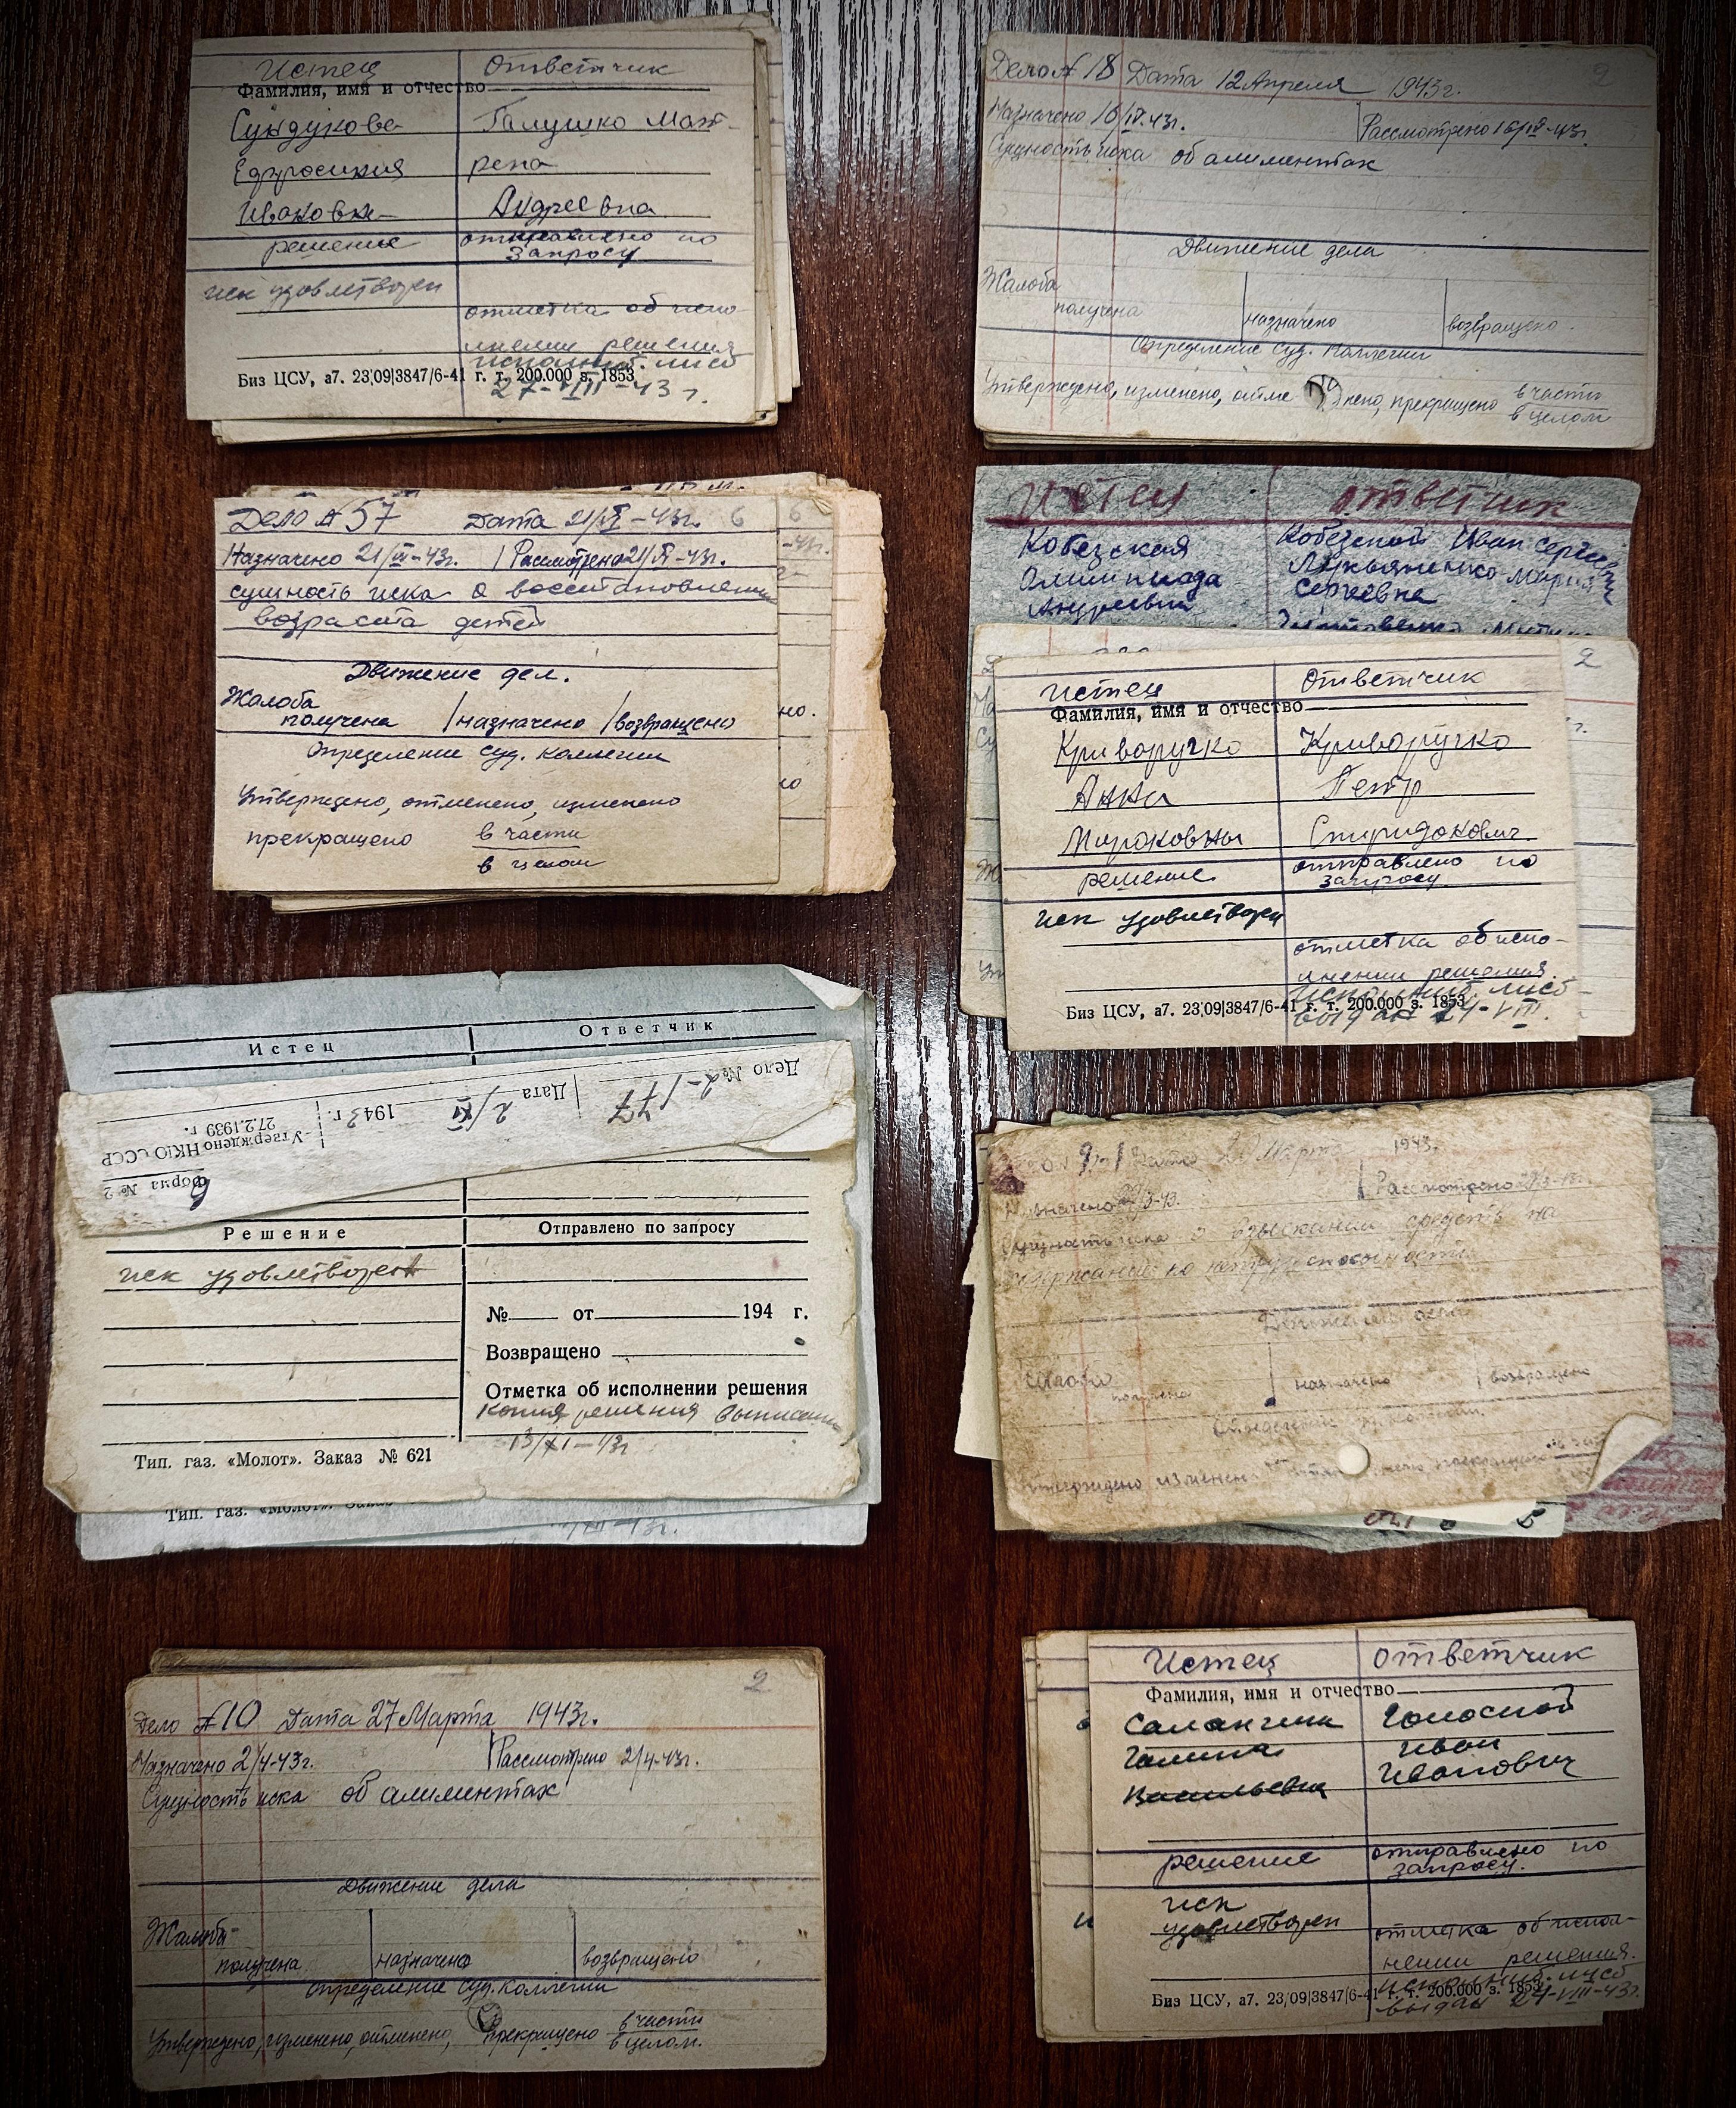 Истец Ответчик
Фамилия, имя и отчество
Сундукова Галушко Мат-
Ефросиния рена
Ивановн Андреевна
решение отправлено по
запросу
иск удовлетворен
отметка об испо-
лнении решения
исполнит. лист
Биз ЦСУ, а7. 23|09|3847/6-41 г. т. 200.000 з. 1853
27-VIII-43 г.
Дело № 18 Дата 12 Апреля 1943г. 2
Назначено 16/IV-43г. Рассмотрено 16/IV-43г.
Сущность иска об алиментах
Движение дела
Жалоба
получена назначено возвращено
Определение Суд. Коллегии
Утверждено, изменено, отме нено, прекращено в части
в целом
Дело № 57 Дата 21/ -43г. 6
Назначено 21/ -43г. Рассмотрено 21/ -43г.
сущность иска о восстановлении
возраста детей
Движение дел.
Жалоба
получена назначено возвращено
Определение Суд. Коллегии
Утверждено, отменено, изменено
прекращено в части
в целом
но.
Истец ответчик
Кобезская Кобезской Иван Сергеевич
Олимпиада Лукьяненко Мария
Андреевна Сергеевна
2
Истец Ответчик
Фамилия, имя и отчество
Криворучко Криворучко
Анна Петр
Мироновны Спиридонович
решение отправлено по
запросу
иск удовлетворен
отметка об испо-
лнении решения.
исполнит. лист
Биз ЦСУ, а7. 23|09|3847/6-41 г. т. 200.000 з. 1853
выдан 24-VIII.
Истец Ответчик
Дело № 2-177 Дата 2/XI 1943 г.
Утверждено НКЮ СССР
27.2.1939 г.
Форма № 2
Решение Отправлено по запросу
иск удовлетворен
№ от 194 г.
Возвращено
Отметка об исполнении решения
Копия решения выписана
13/XI-43г
Тип. газ. «Молот». Заказ № 621
Тип. газ. «Молот». Заказ
Дата Марта 1943г.
Назначено /3-43. Рассмотрено
Сущность иска о взыскании средств на
содержание по нетрудоспособности
Движение дела
Жалоба
получена назначено возвращено
Утверждено изменено прекращено
Дело № 10 Дата 27 Марта 1943г. 2
Назначено 2/4-43г. Рассмотрено 2/4-43г.
Сущность иска об алиментах
Движение дела
Жалоба
получена назначено возвращено
Определение Суд. Коллегии
Утверждено, изменено, отменено, прекращено в части
в целом.
Истец ответчик
Фамилия, имя и отчество
Голосной
Галина Иван
Васильевна Иванович
решение отправлено по
запросу.
иск
удовлетворен отметка об испол-
нении решения.
исполнит. лист
Биз ЦСУ, а7. 23|09|3847/6-41 г. т. 200.000 з. 1853
выдан 24-VIII-43г.